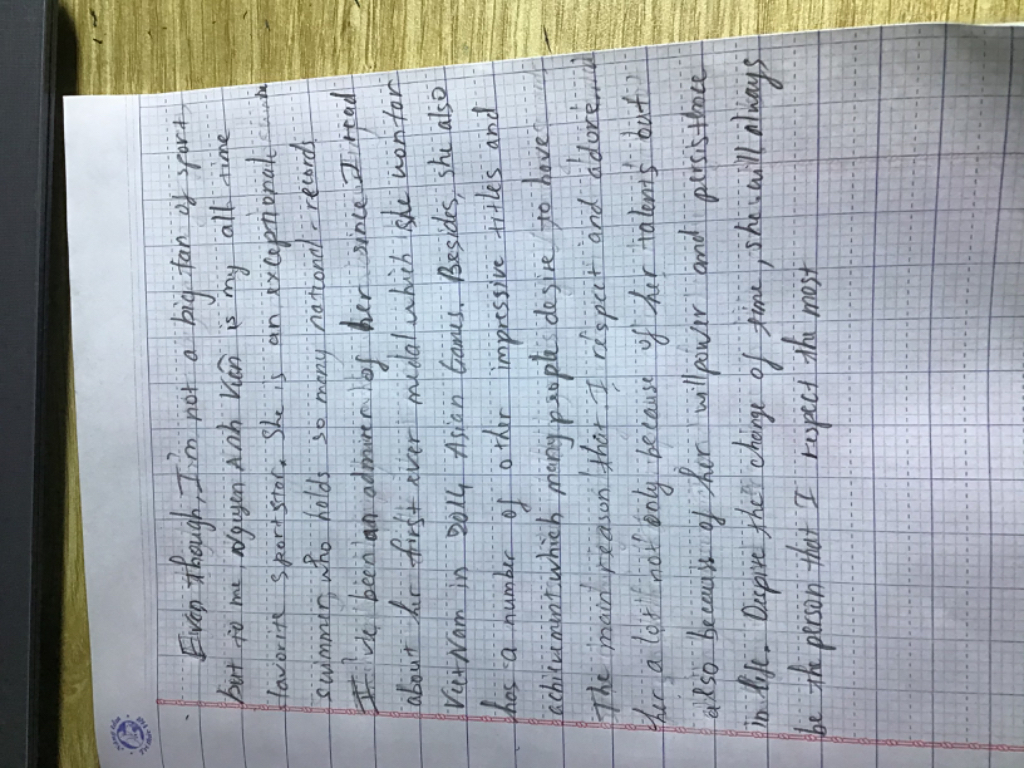 Evan though, I'm not a big fan of sport,
but to me Nguyen Anh Vien is my all time
favorite sportstar. She is an exceptional
swimmer, who holds so many national records
I've been an admirer of her since I read
about her first ever medal which she won for
Viet Nam in 2014 Asian Games. Besides, she also
has a number of other impressive titles and
achievement which many people desire to have
The main reason that I respect and adore
her a lot not only because of her talents but
also because of her willpower and persistance
in life. Despire the change of time, she will always
be the person that I respect the most